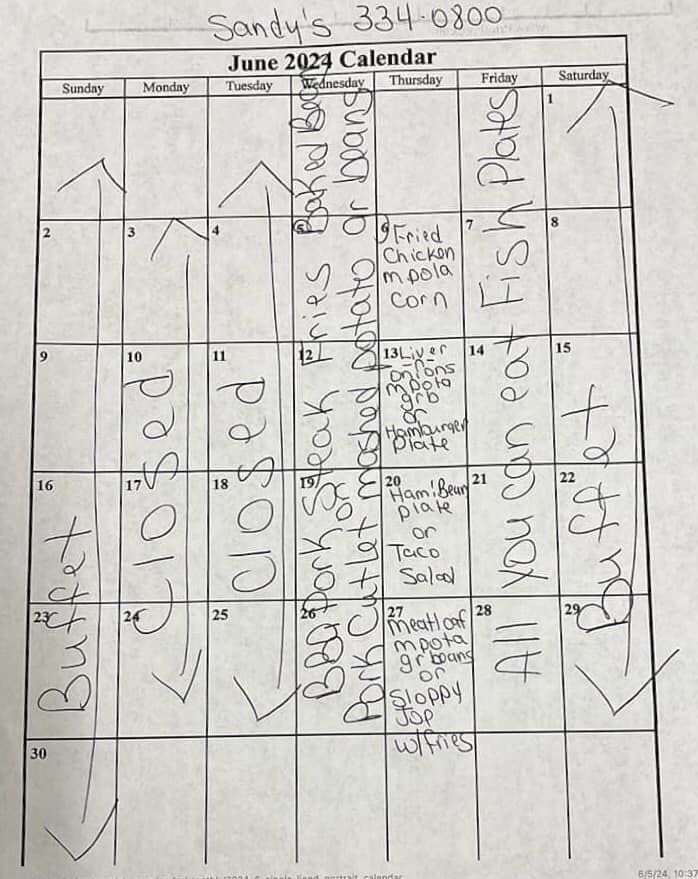 Sandy's 334-0800
June 2024 Calendar
Sunday Monday Tuesday Wednesday Thursday Friday Saturday
1
2 3 4 5 6 7 8
9 10 11 12 13 14 15
16 17 18 19 20 21 22
23 24 25 26 27 28 29
30
Buffet
Closed
Closed
BBQ Pork Steak Fries Baked Bean
or
Pork Cutlet mashed potato gr beans
Fried
Chicken
m pota
Corn
Liver
onions
m pota
grb
or
Hamburger
Plate
Ham! Bean
plate
or
Taco
Salad
meatloaf
m pota
gr beans
or
Sloppy
Jop
w/fries
All you can eat Fish Plates
Buffet
6/5/24, 10:37